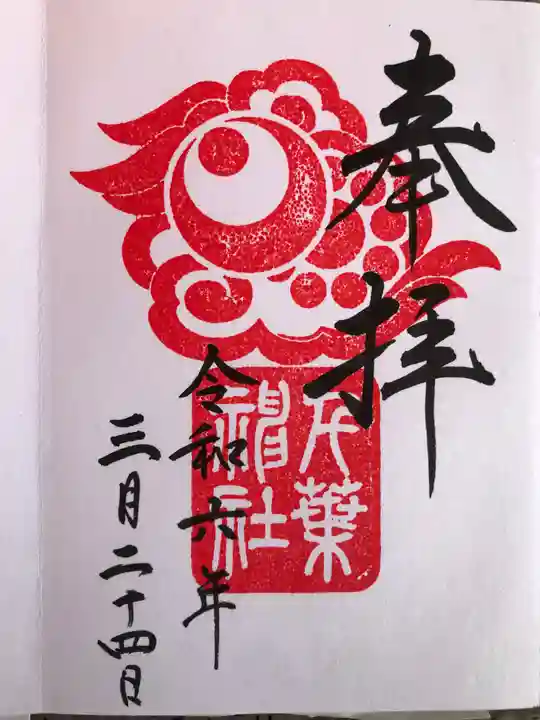 奉拝
千葉
神社
令和六年
三月二十四日